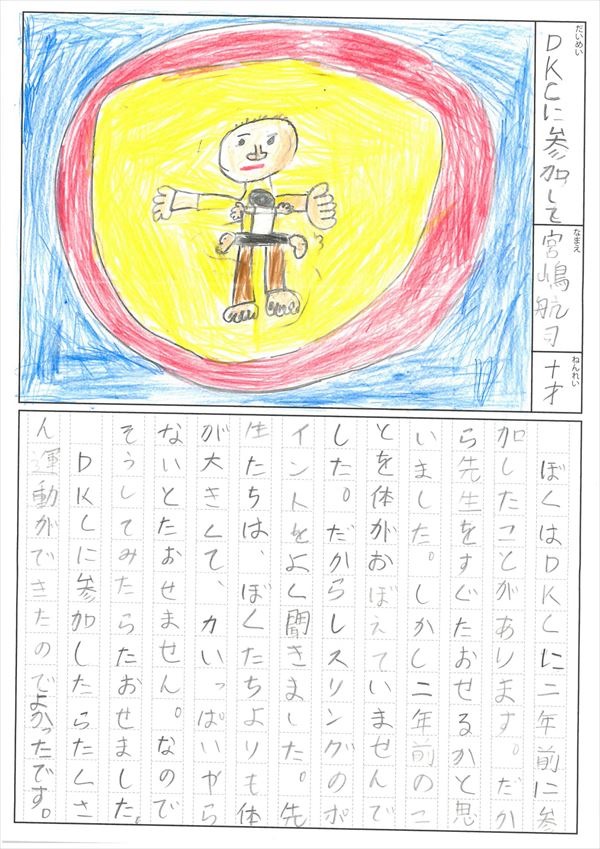 だいめい
DKCに参加して
なまえ
宮嶋航司
ねんれい
十才
ぼくはDKCに二年前に参
加したことがあります。だか
ら先生をすぐたおせるかと思
いました。しかし二年前のこ
とを体がおぼえていませんで
した。だからレスリングのポ
イントをよく聞きました。先
生たちは、ぼくたちよりも体
が大きくて、力いっぱいやら
ないとたおせません。なので
そうしてみたらたおせました。
DKCに参加したらたくさ
ん運動ができたのでよかったです。